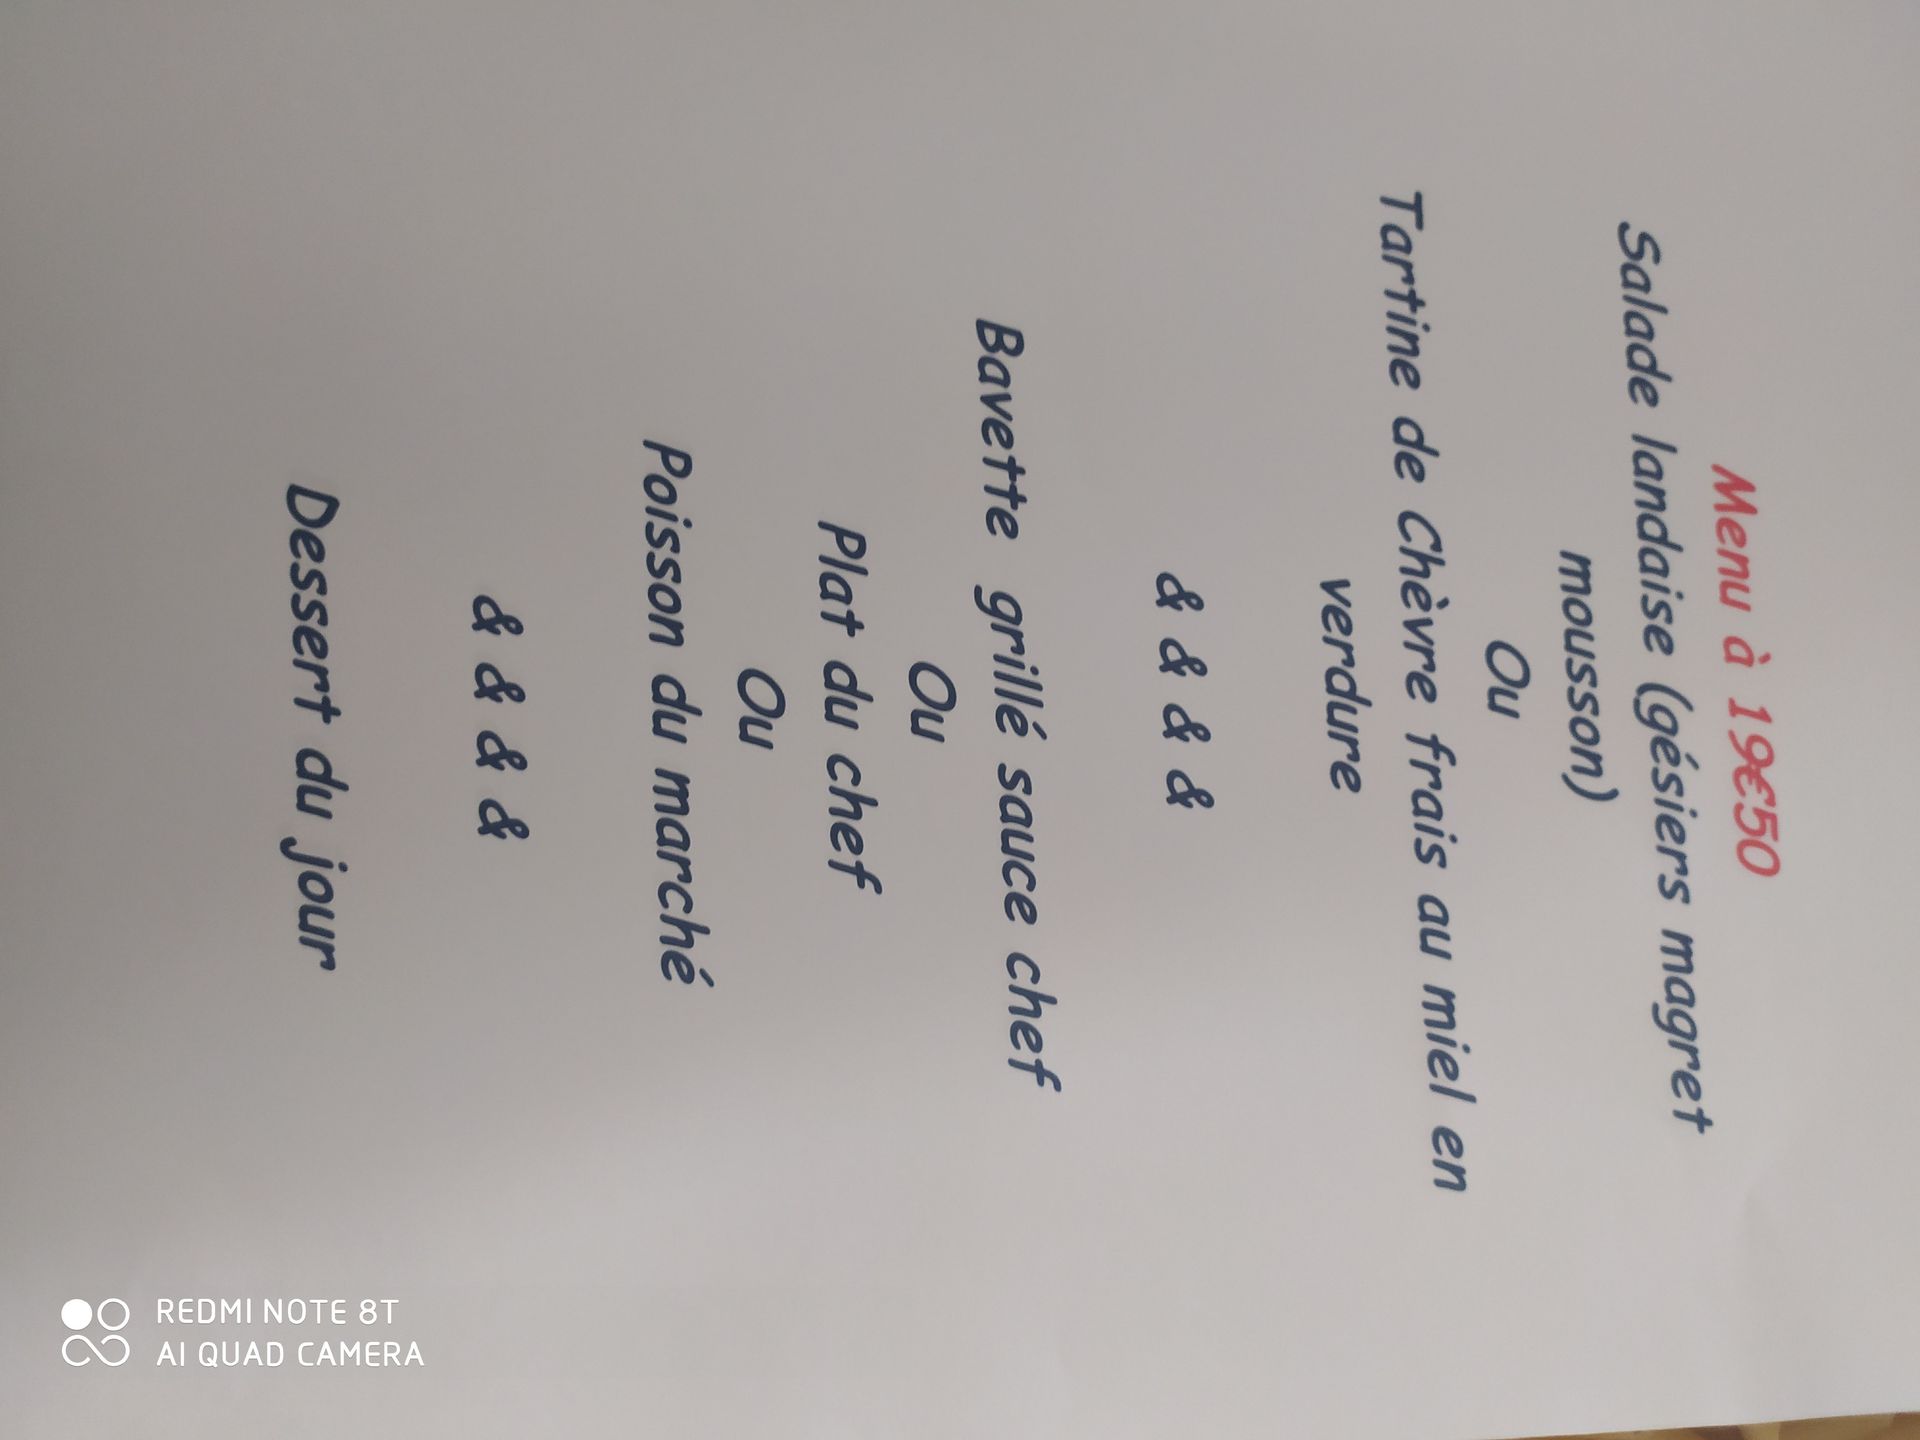 Menu à 19€50
Salade landaise (gésiers magret
mousson)
Ou
Tartine de Chèvre frais au miel en
verdure
& & & &
Bavette grillé sauce chef
Ou
Plat du chef
Ou
Poisson du marché
& & & &
Dessert du jour
REDMI NOTE 8T
AI QUAD CAMERA